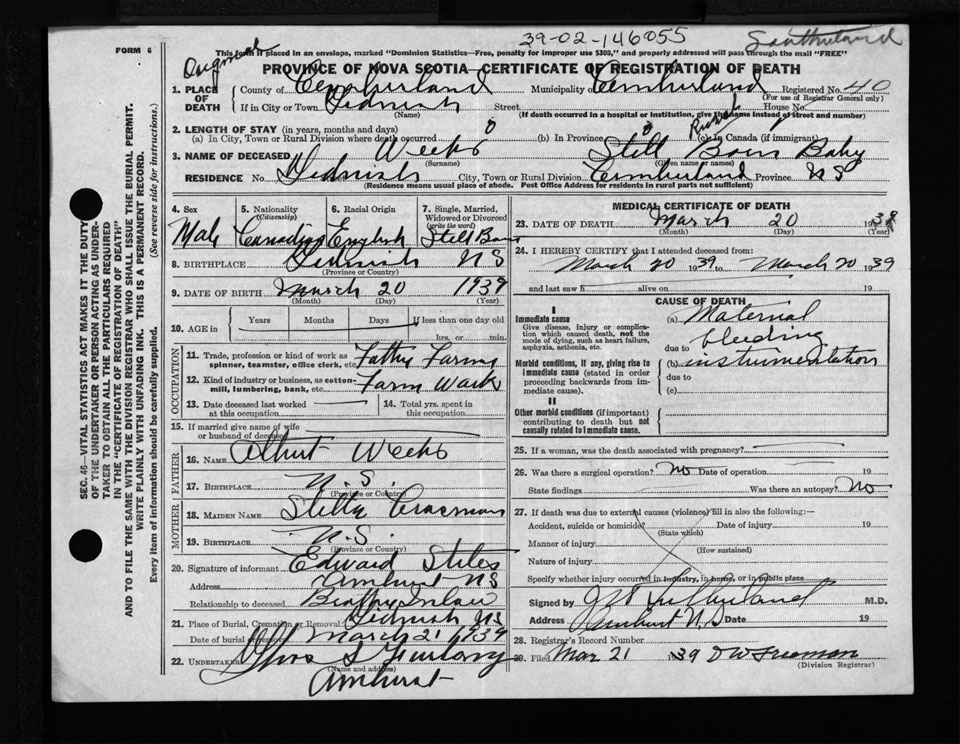 39-02-146055
FORM 6
This form if placed in an envelope, marked "Dominion Statistics—Free, penalty for improper use $300," and properly addressed will pass through the mail "FREE"
PROVINCE OF NOVA SCOTIA—CERTIFICATE OF REGISTRATION OF DEATH
1. PLACE OF DEATH County of Cumberland Municipality Cumberland Registered No. 40
(For use of Registrar General only)
If in City or Town Tidnish Street House No.
(Name) (If death occurred in a hospital or institution, give the name instead of street and number)
2. LENGTH OF STAY (in years, months and days) Rural
(a) In City, Town or Rural Division where death occurred 0 (b) In Province 0 (c) In Canada (if immigrant)
3. NAME OF DECEASED Weeks Still Born Baby
(Surname) (Given name or names)
RESIDENCE No. Tidnish City, Town or Rural Division Cumberland Province NS
(Residence means usual place of abode. Post Office Address for residents in rural parts not sufficient)
4. Sex 5. Nationality (Citizenship) 6. Racial Origin 7. Single, Married, Widowed or Divorced (write the word)
Male Canadian English Still Born
8. BIRTHPLACE Tidnish NS
(Province or Country)
9. DATE OF BIRTH March 20 1939
(Month) (Day) (Year)
10. AGE in Years Months Days If less than one day old
hrs. or min.
OCCUPATION
11. Trade, profession or kind of work as spinner, teamster, office clerk, etc. Father Farms
12. Kind of industry or business, as cotton-mill, lumbering, bank, etc. Farm Work
13. Date deceased last worked at this occupation 14. Total yrs. spent in this occupation
15. If married give name of wife or husband of deceased
FATHER
16. NAME Albert Weeks
17. BIRTHPLACE N.S.
(Province or Country)
MOTHER
18. MAIDEN NAME Stella
19. BIRTHPLACE N.S.
(Province or Country)
20. Signature of informant Edward Stiles
Address Amherst NS
Relationship to deceased
21. Place of Burial, Cremation, Removal Tidnish NS
Date of burial or removal March 21 1939
22. UNDERTAKER Furlong
(Name and address)
Amherst
MEDICAL CERTIFICATE OF DEATH
23. DATE OF DEATH March 20 1938
(Month) (Day) (Year)
24. I HEREBY CERTIFY that I attended deceased from:
March 20 1939 to March 20 1939
and last saw h alive on 19
CAUSE OF DEATH
I
Immediate cause (a) Maternal
Give disease, injury or complication which caused death, not the mode of dying, such as heart failure, asphyxia, asthenia, etc.
due to bleeding
Morbid conditions, if any, giving rise to immediate cause (stated in order proceeding backwards from immediate cause). (b) instrumentation
due to
(c)
II
Other morbid conditions (if important) contributing to death but not causally related to immediate cause.
25. If a woman, was the death associated with pregnancy?
26. Was there a surgical operation? No Date of operation 19
State findings Was there an autopsy? No
27. If death was due to external causes (violence) fill in also the following:—
Accident, suicide or homicide? Date of injury 19
(State which)
Manner of injury
(How sustained)
Nature of injury
Specify whether injury occurred in industry, in home, or in public place
Signed by Sutherland M.D.
Address Amherst N.S Date 19
28. Registrar's Record Number
29. Filed Mar 21 1939 DW Freeman
(Division Registrar)
SEC. 46—VITAL STATISTICS ACT MAKES IT THE DUTY OF THE UNDERTAKER OR PERSON ACTING AS UNDERTAKER TO OBTAIN ALL THE PARTICULARS REQUIRED IN THE "CERTIFICATE OF REGISTRATION OF DEATH" AND TO FILE THE SAME WITH THE DIVISION REGISTRAR WHO SHALL ISSUE THE BURIAL PERMIT.
WRITE PLAINLY WITH UNFADING INK. THIS IS A PERMANENT RECORD.
Every item of information should be carefully supplied. (See reverse side for instructions.)